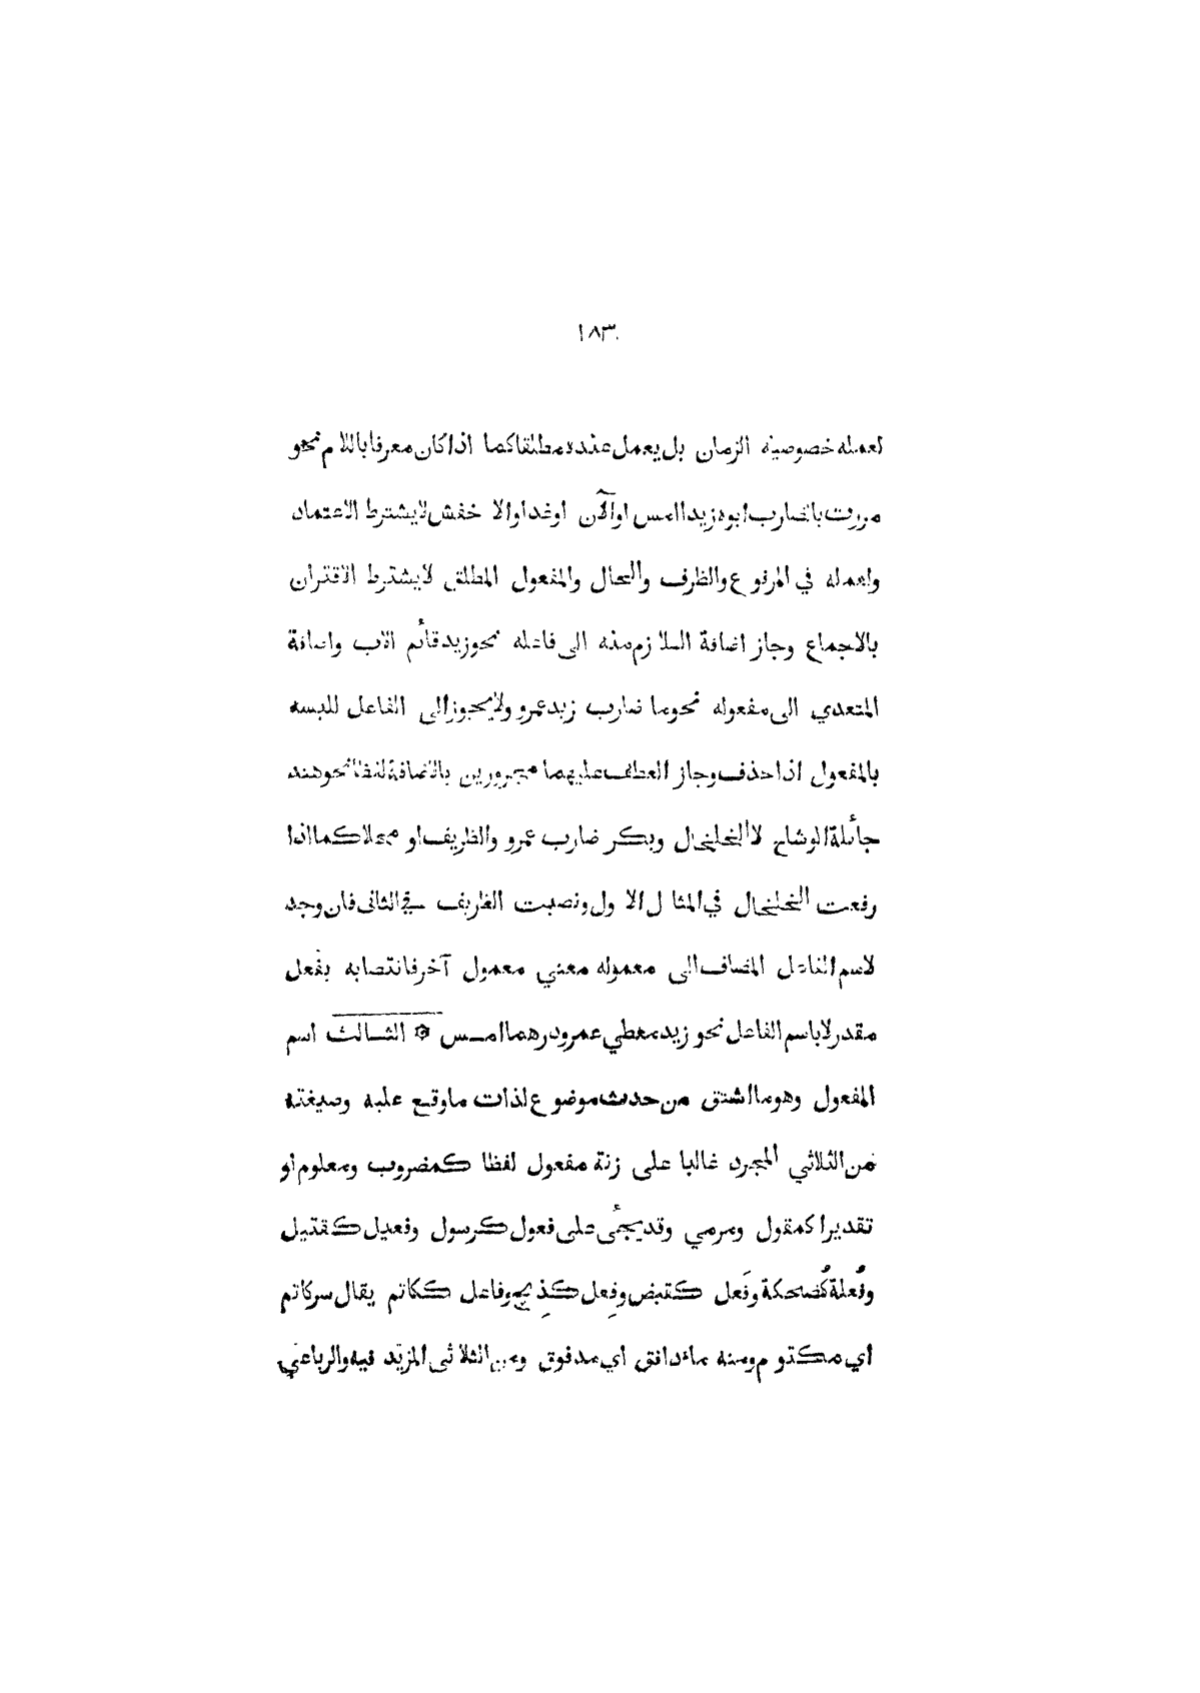 ١٨٣
لعمله خصوصية الزمان بل يعمل عنده مطلقا كما اذا كان معرفا باللام نحو
مررت بالضارب ابوه زيدا امس او الآن او غدا والاخفش لا يشترط الاعتماد
واعماله في المرفوع والظرف والحال والمفعول المطلق لا يشترط الاقتران
بالاجماع وجاز اضافة اللازم منه الى فاعله نحو زيد قائم الاب واضافة
المتعدي الى مفعوله نحو ما ضارب زيد عمرو ولا يجوز الى الفاعل للبسه
بالمفعول اذا حذف وجاز العطف عليهما مجرورين بالاضافة لفظا نحو هند
جائلة الوشاح لا الخلخال وبكر ضارب عمرو والظريف او محلا كما اذا
رفعت الخلخال في المثال الاول ونصبت الظريف في الثانى فان وجد
لاسم الفاعل المضاف الى معموله معني معمول آخر فانتصابه بفعل
مقدر لا باسم الفاعل نحو زيد معطي عمرو درهما امس ۞ الثالث اسم
المفعول وهو ما اشتق من حدث موضوع لذات ما وقع عليه وصيغته
من الثلاثي المجرد غالبا على زنة مفعول لفظا كمضروب ومعلوم او
تقديرا كمقول ومرمي وقد يجئ على فعول كرسول وفعيل كقتيل
وفُعلة كضُحكة وفَعل كقبض وفِعل كذِبح وفاعل ككاتم يقال سر كاتم
اي مكتوم ومنه ماء دافق اي مدفوق ومن الثلاثى المزيد فيه والرباعي